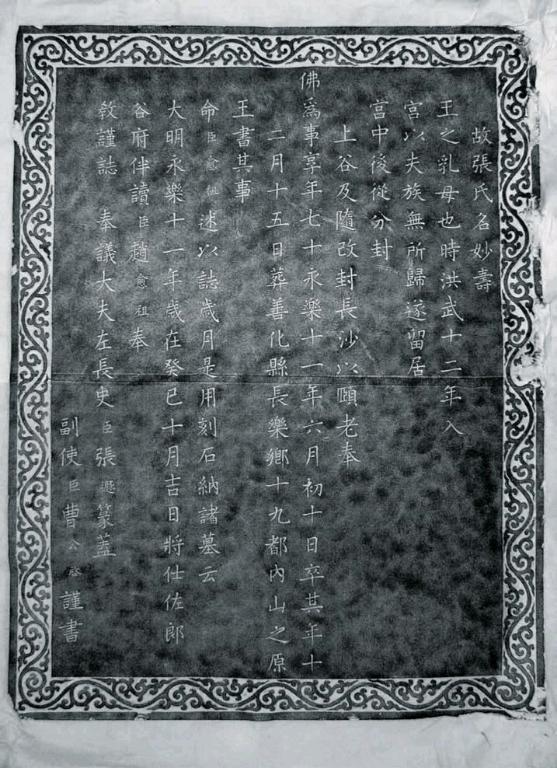 故張氏名妙壽
王之乳母也時洪武十二年入
宮以夫族無所歸遂留居
宮中後從分封
上谷及隨改封長沙以頤老奉
佛爲事享年七十永樂十一年六月初十日卒其年十
二月十五日葬善化縣長樂鄉十九都內山之原
王書其事
命臣愈祖述以誌歲月是用刻石納諸墓云
大明永樂十一年歲在癸巳十月吉日將仕佐郎
谷府伴讀臣趙愈祖奉
敎謹誌 奉議大夫左長史臣張篆蓋
副使臣曹公謹書